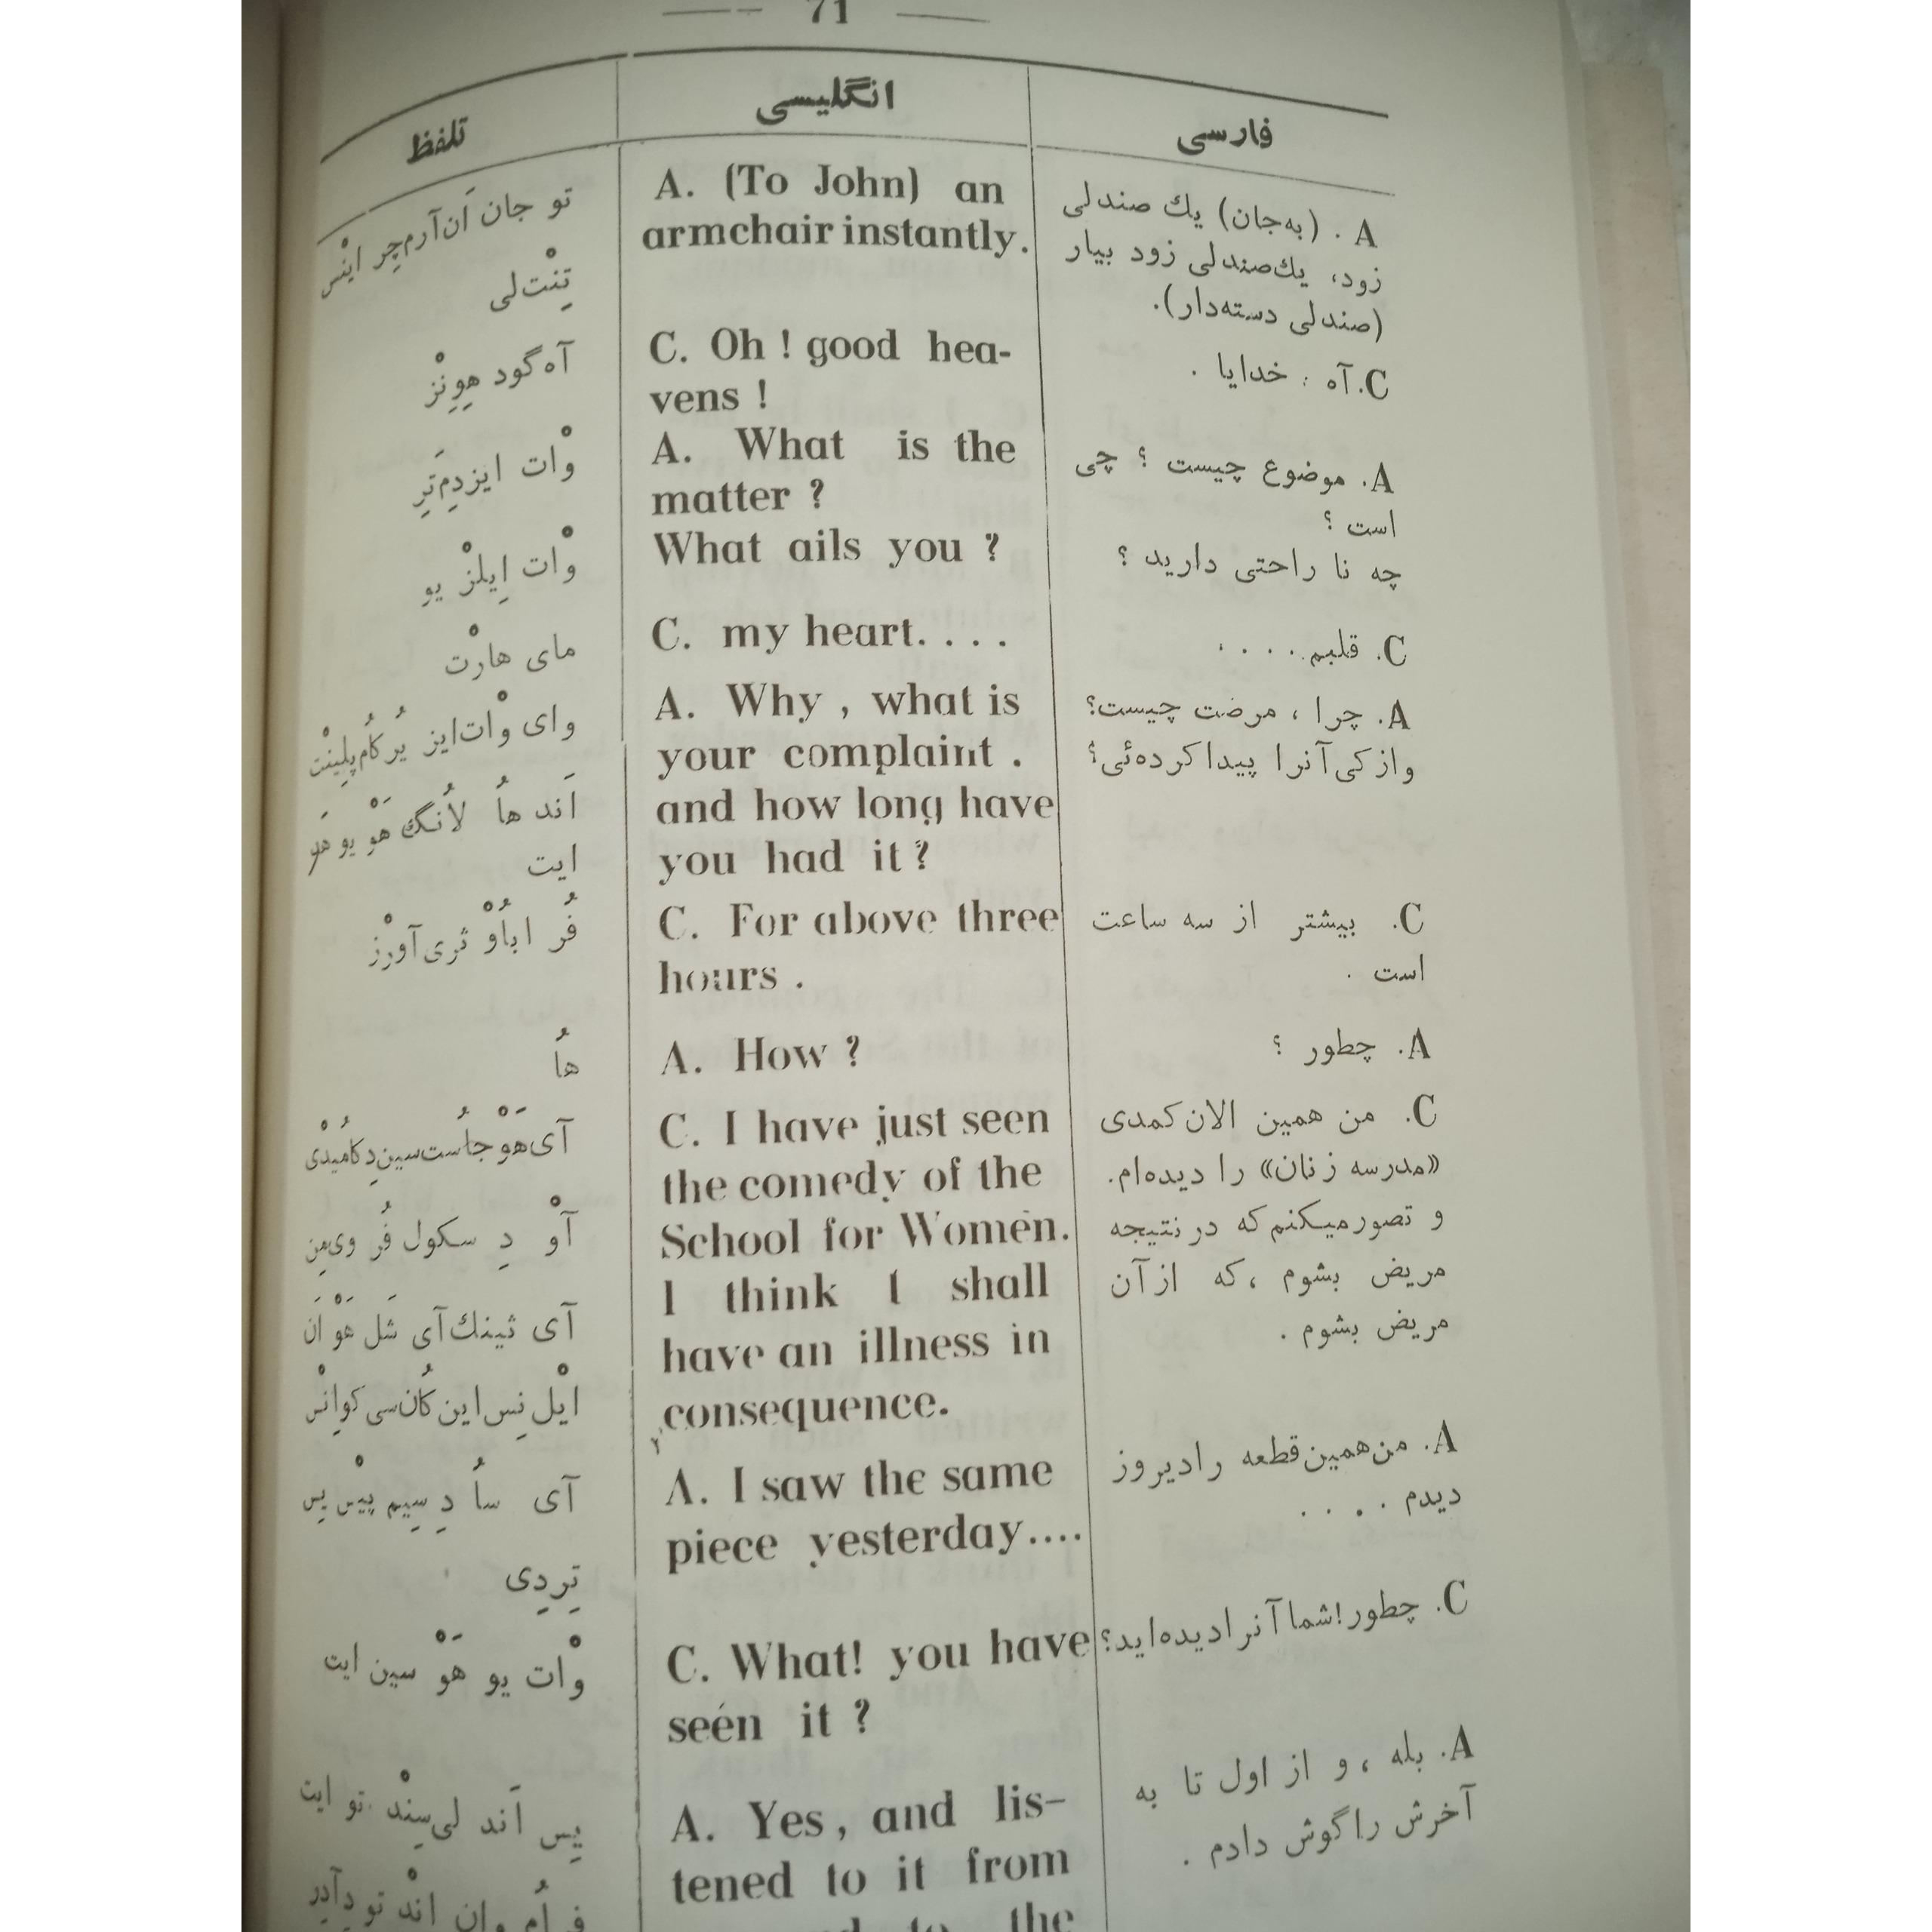 71
انگلیسی
A. (To John) an
armchair instantly.
C. Oh ! good hea-
vens !
A. What is the
matter ?
What ails you ?
C. my heart. . . .
A. Why , what is
your complaint .
and how long have
you had it ?
C. For above three
hours .
A. How ?
C. I have just seen
the comedy of the
School for Women.
I think I shall
have an illness in
consequence.
A. I saw the same
piece yesterday....
C. What! you have
seén it ?
A. Yes , and lis-
tened to it from
to the
فارسی
A . (به‌جان) یك صندلی
زود، یك‌صندلی زود بیار
(صندلی دسته‌دار).
C. آه : خدایا .
A. موضوع چیست ؟ چی
است ؟
چه نا راحتی دارید ؟
C. قلبم . . . . .
A. چرا ، مرضت چیست؟
و از کی آنرا پیدا کرده‌ئی؟
C. بیشتر از سه ساعت
است .
A. چطور ؟
C. من همین الان کمدی
«مدرسه زنان» را دیده‌ام.
و تصور میکنم که در نتیجه
مریض بشوم ، که از آن
مریض بشوم .
A. من همین قطعه را دیروز
دیدم . . . .
C. چطور! شما آنرا دیده‌اید؟
A. بله ، و از اول تا به
آخرش را گوش دادم .
تلفظ
تو جان اَن آرم چِر اینْس
تِنْت لی
آه گود هِوِنْز
وْات ایز دِم تَرِ
وْات اِیلْز یو
مای هارْت
وای وْات ایز یُر کُام پلِینْت
اَند هاُ لاُنگ هَوْ یو هَد
ایت
فُر اباُوْ ثری آورْز
هاُ
آی هَوْ جاُست سین دِ کامیُدْی
آوْ دِ سکول فُر وی‌مِن
آی ثینك آی شَل هَوْ اَن
ایْل نِس این کُان سی کواِنْس
آی ساُ دِ سِیم پیْس یِس
تِردِی
وْات یو هَوْ سین ایت
یِس اَند لی‌سِنْد تو ایت